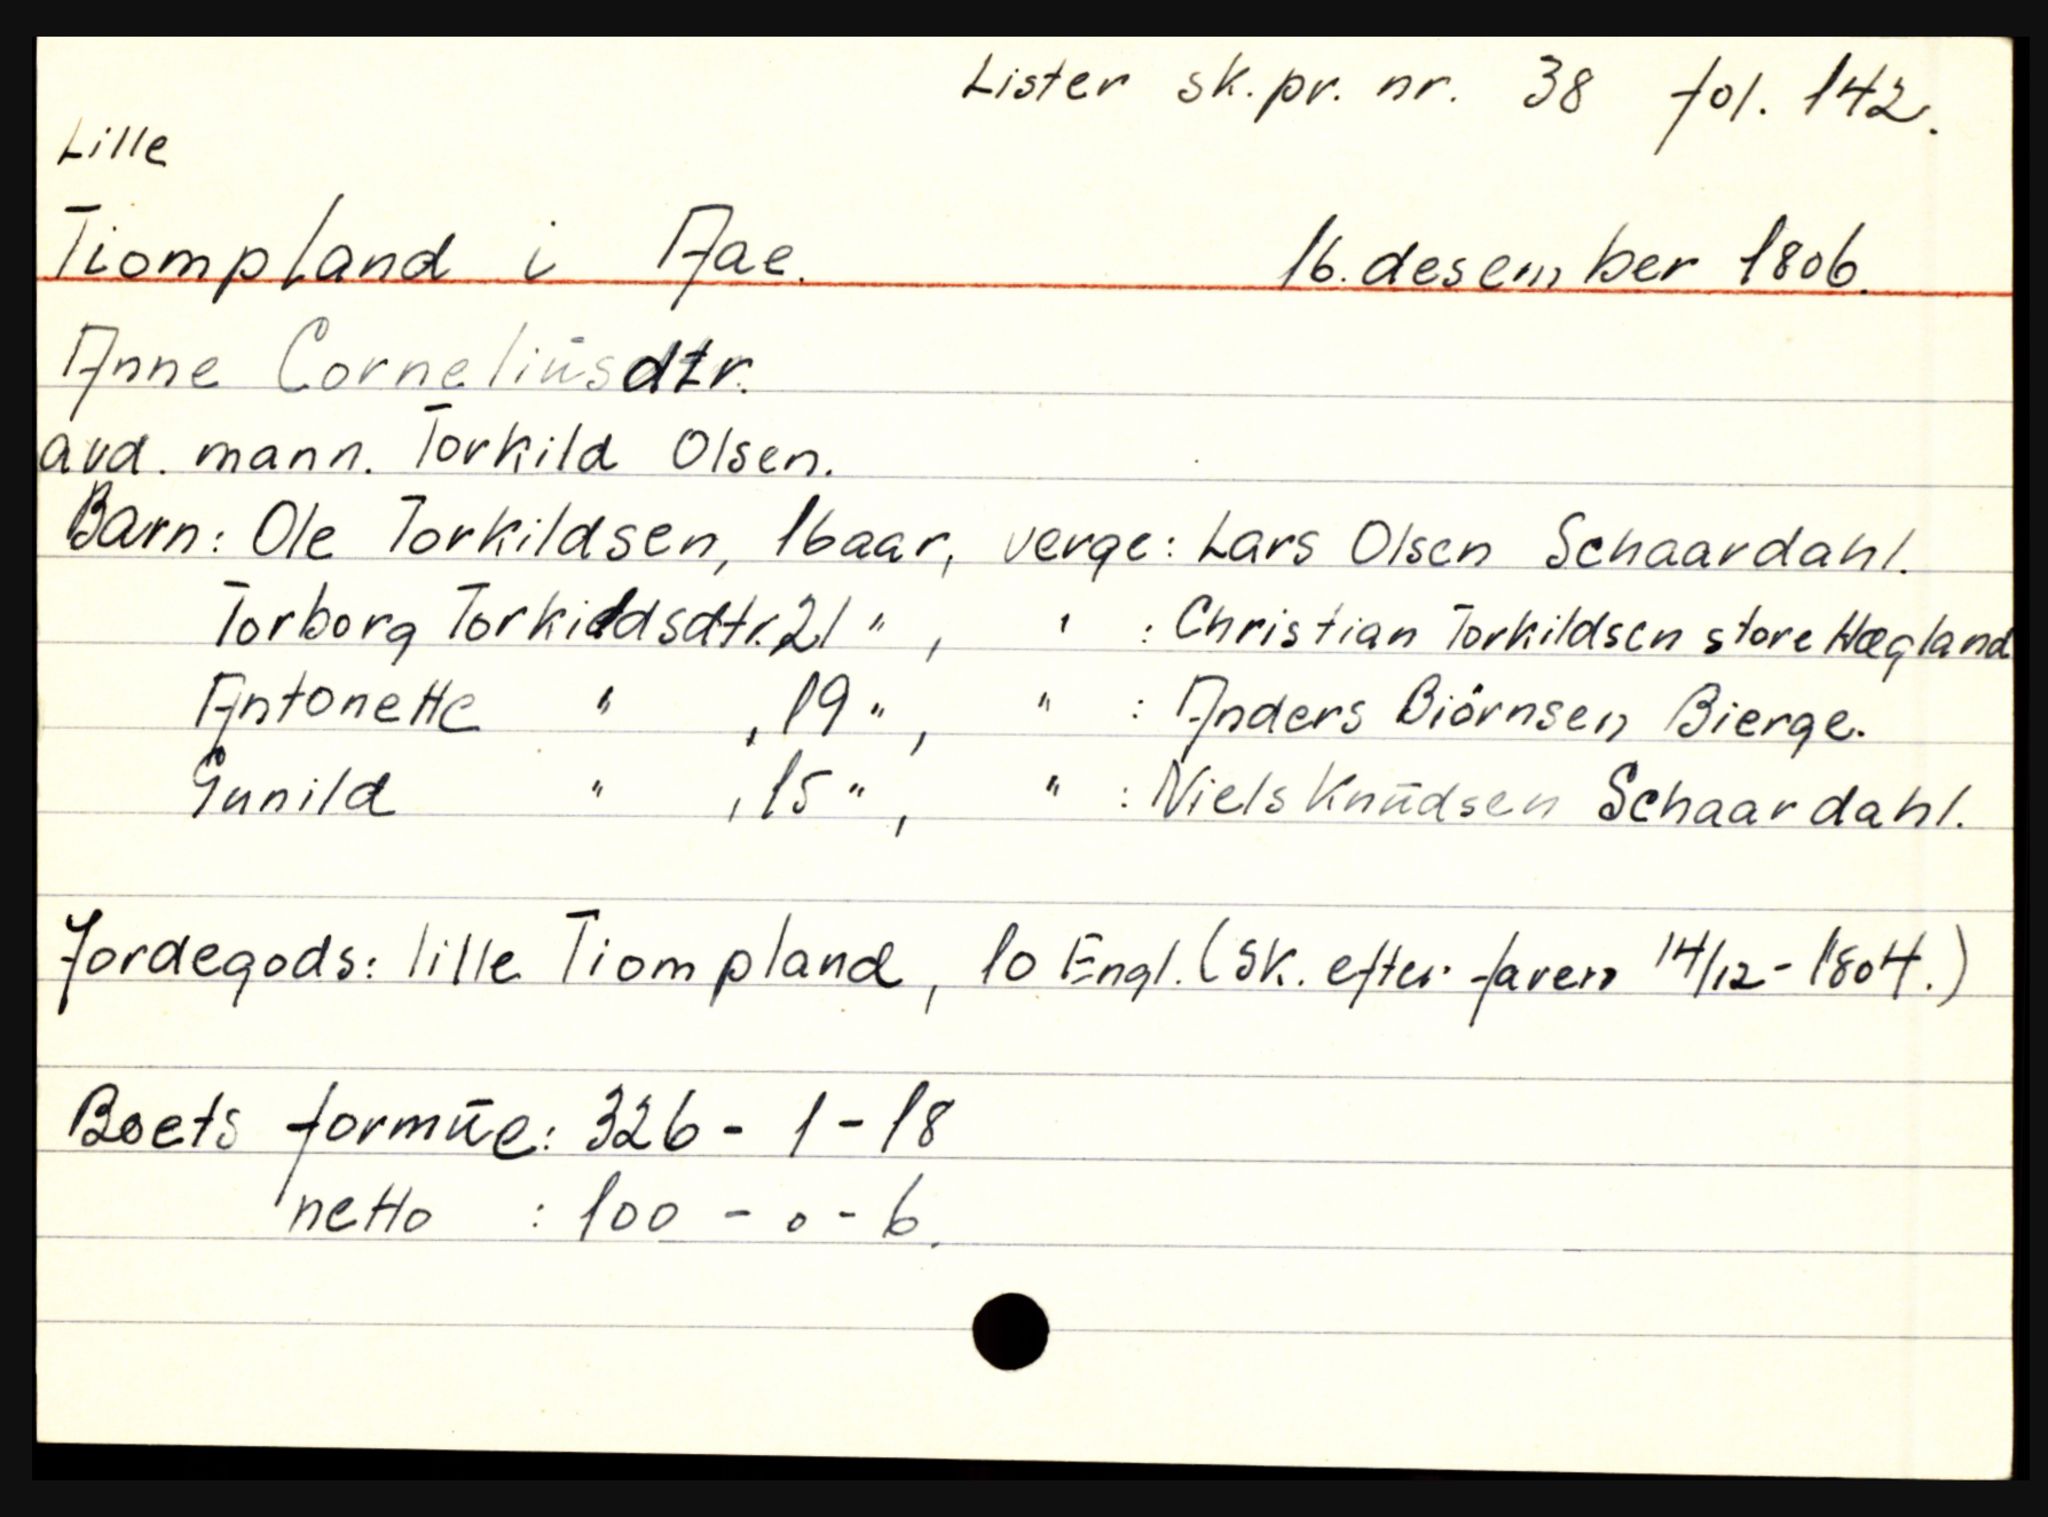 Lister sk.pr. nr. 38 fol. 142.
Lille
Tiompland i Aae. 16. desember 1806.
Anne Corneliusdtr.
avd. mann. Torkild Olsen.
Barn: Ole Torkildsen, 16 aar, verge: Lars Olsen Schaardahl.
Torborg Torkildsdtr. 21 " , " : Christian Torkildsen store Hægland
Antonette " , 19 " , " : Anders Biörnsen Bierge.
Gunild " , 15 " , " : Niels Knudsen Schaardahl.
Jordegods: lille Tiompland, 10 Engl. (sk. efter faren 14/12-1804.)
Boets formue: 326 - 1 - 18
netto : 100 - 0 - 6.